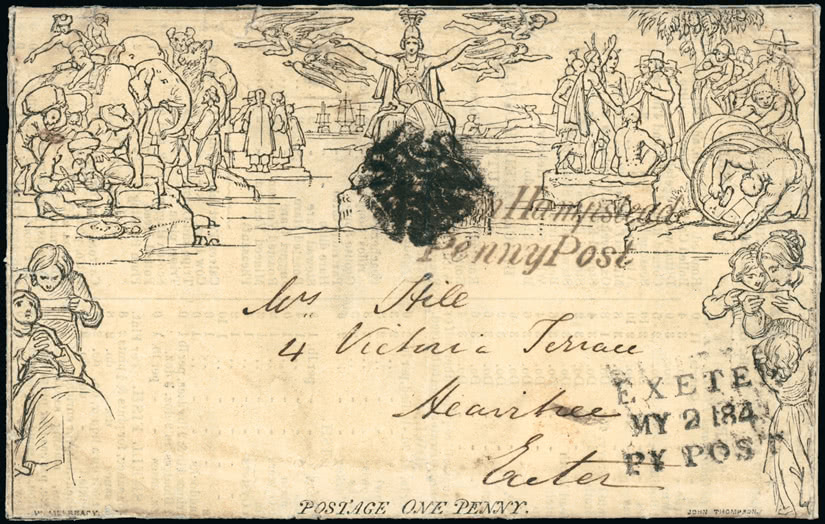 Hampstead
Penny Post
Mrs Hill
4 Victoria Terrace
Heavitree
Exeter
EXETER
MY 2 184
PY POST
POSTAGE ONE PENNY.
W. MULREADY.
JOHN THOMPSON.